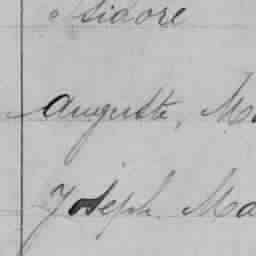 Isidore
Auguste, Ma
Joseph Ma